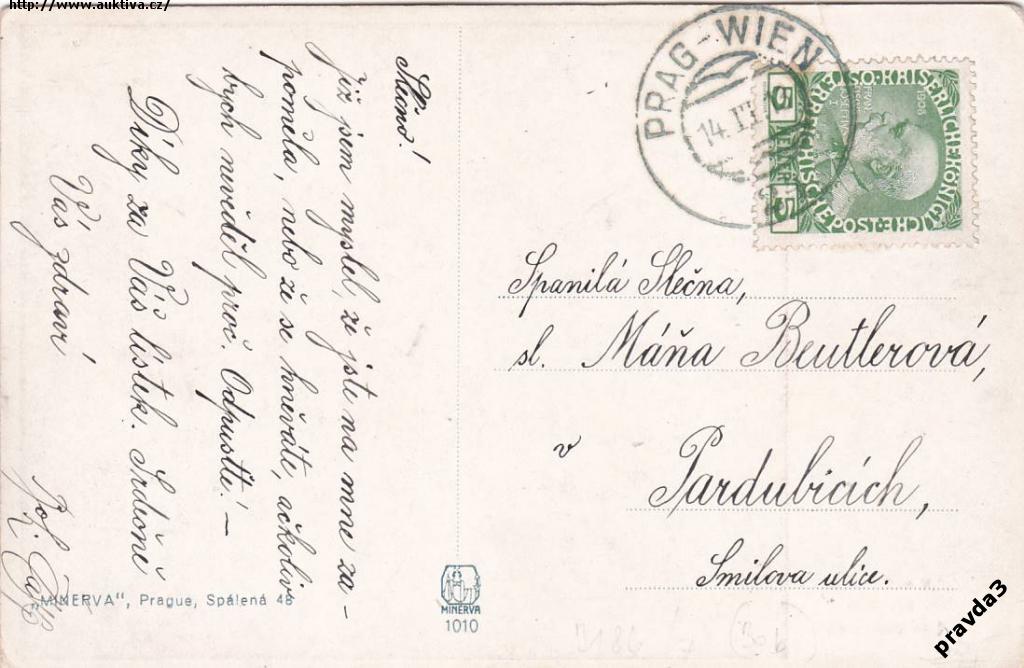 http://www.auktiva.cz/
Slečno!
již jsem myslel, že jste na mne za-
pomněla, nebo že se hněváte, ačkoliv
bych nevěděl proč. Odpusťte! —
Díky za Váš lístek. Srdečně
Vás zdraví
PRAG-WIEN
14.
KAISERLICHE KÖNIGLICHE ÖSTERREICHISCHE POST
1908
5 HELLER 5
Spanilá Slečna,
sl. Máňa Beutlerová,
v
Pardubicích,
Smilova ulice.
„MINERVA", Prague, Spálená 48
MINERVA
1010
pravda3